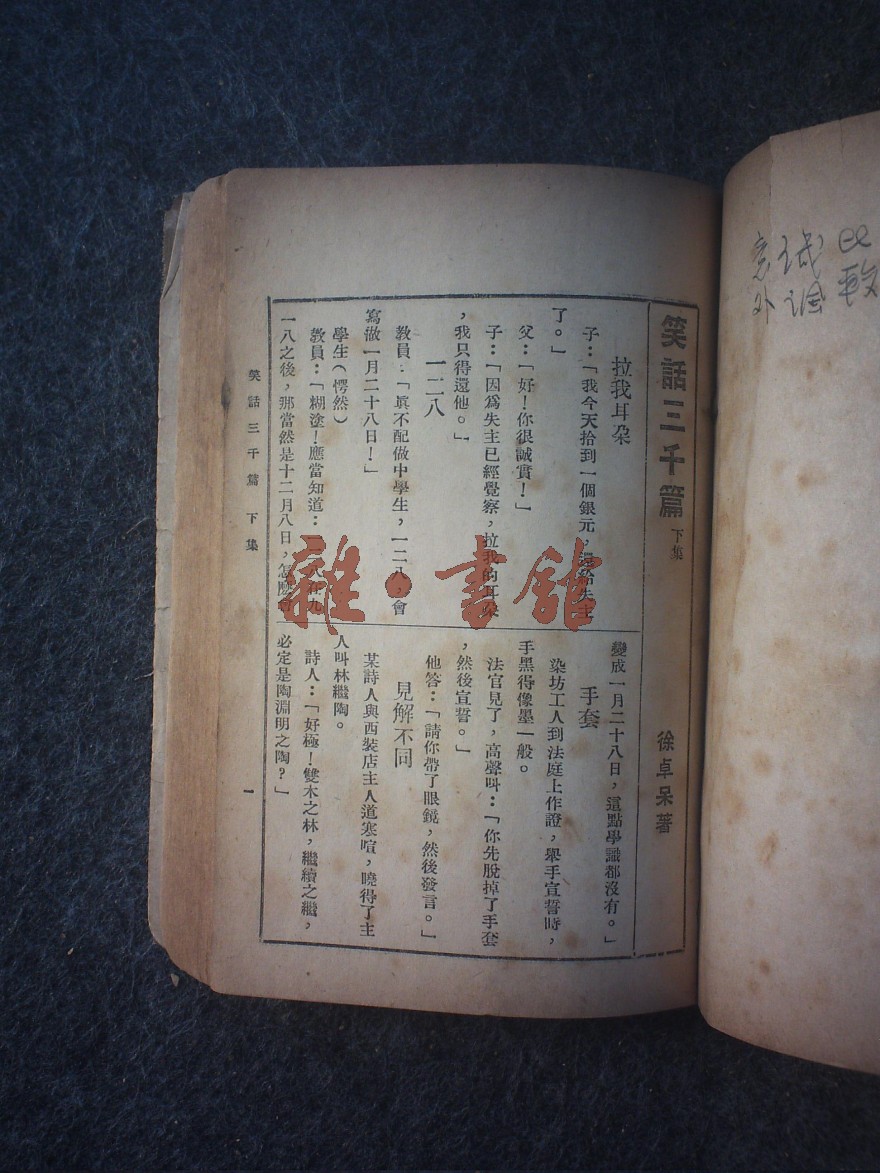 比較
誠諭
意外
笑話三千篇 下集
徐卓呆著
拉我耳朶
子：「我今天拾到一個銀元，還給失主
了。」
父：「好！你很誠實！」
子：「因爲失主已經覺察，拉我的耳朶
，我只得還他。」
一二八
教員：「眞不配做中學生，一二八，會
寫做一月二十八日！」
學生（愕然）
教員：「糊塗！應當知道：一二八在九
一八之後，那當然是十二月八日，怎麼會
變成一月二十八日，這點學識都沒有。」
手套
染坊工人到法庭上作證，舉手宣誓時，
手黑得像墨一般。
法官見了，高聲叫：「你先脫掉了手套
，然後宣誓。」
他答：「請你帶了眼鏡，然後發言。」
見解不同
某詩人與西裝店主人道寒暄，曉得了主
人叫林繼陶。
詩人：「好極！雙木之林，繼續之繼，
必定是陶淵明之陶？」
笑話三千篇 下集
一
雜·書館